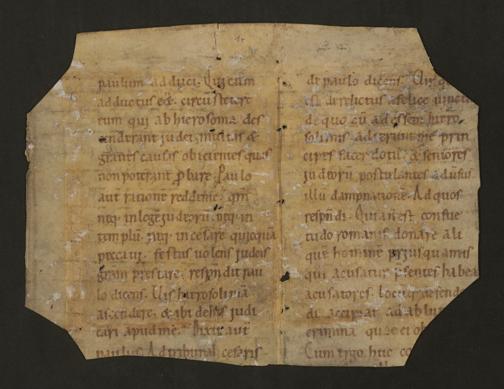 paulum adduci. Qui cum
adductus eēt circūstetert
eum qui ab hierosoma des
cenderant judei multas &
graues causas obicientes quas
non poterant pbare. Paulo
aut ratione reddente qm̄
neq; in lege judeorū neq; in
templū neq; in cesare quicquā
peccaui. festus uolens judeis
gratiam prestare. respondit pau
lo dicens. Uis hierosolimā
ascendere. & ibi de his judi
cari apud me. Dixit aut
paulus. Ad tribunal cesaris
de paulo dicens. Uir
est derelictus a felice uinctꝰ
de quo cū adessem hiero
solimis adierunt me prin
cipes sacerdotū & seniores
judeorū postulantes aduersꝰ
illū dampnatione. Ad quos
respōdi. Quia nēst consue
tudo romanis donare ali
que homine priusquam is
qui acusatur psentes habeat
acusatores. locūq; defende
di accipiat ad ablu
crimina que ei ob
Cum ergo huc co